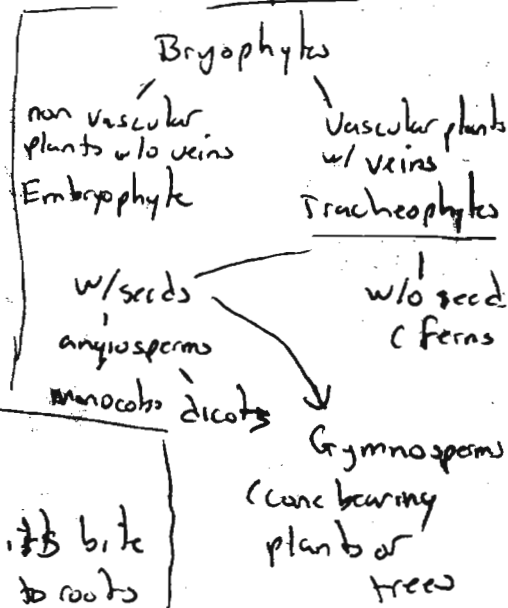 Bryophytes
non vascular
plants w/o veins
Embryophyte
Vascular plants
w/ veins
Tracheophytes
w/seeds
angiosperms
monocots dicots
w/o seed
( ferns
Gymnosperms
( cone bearing
plants or
trees
bite
to roots